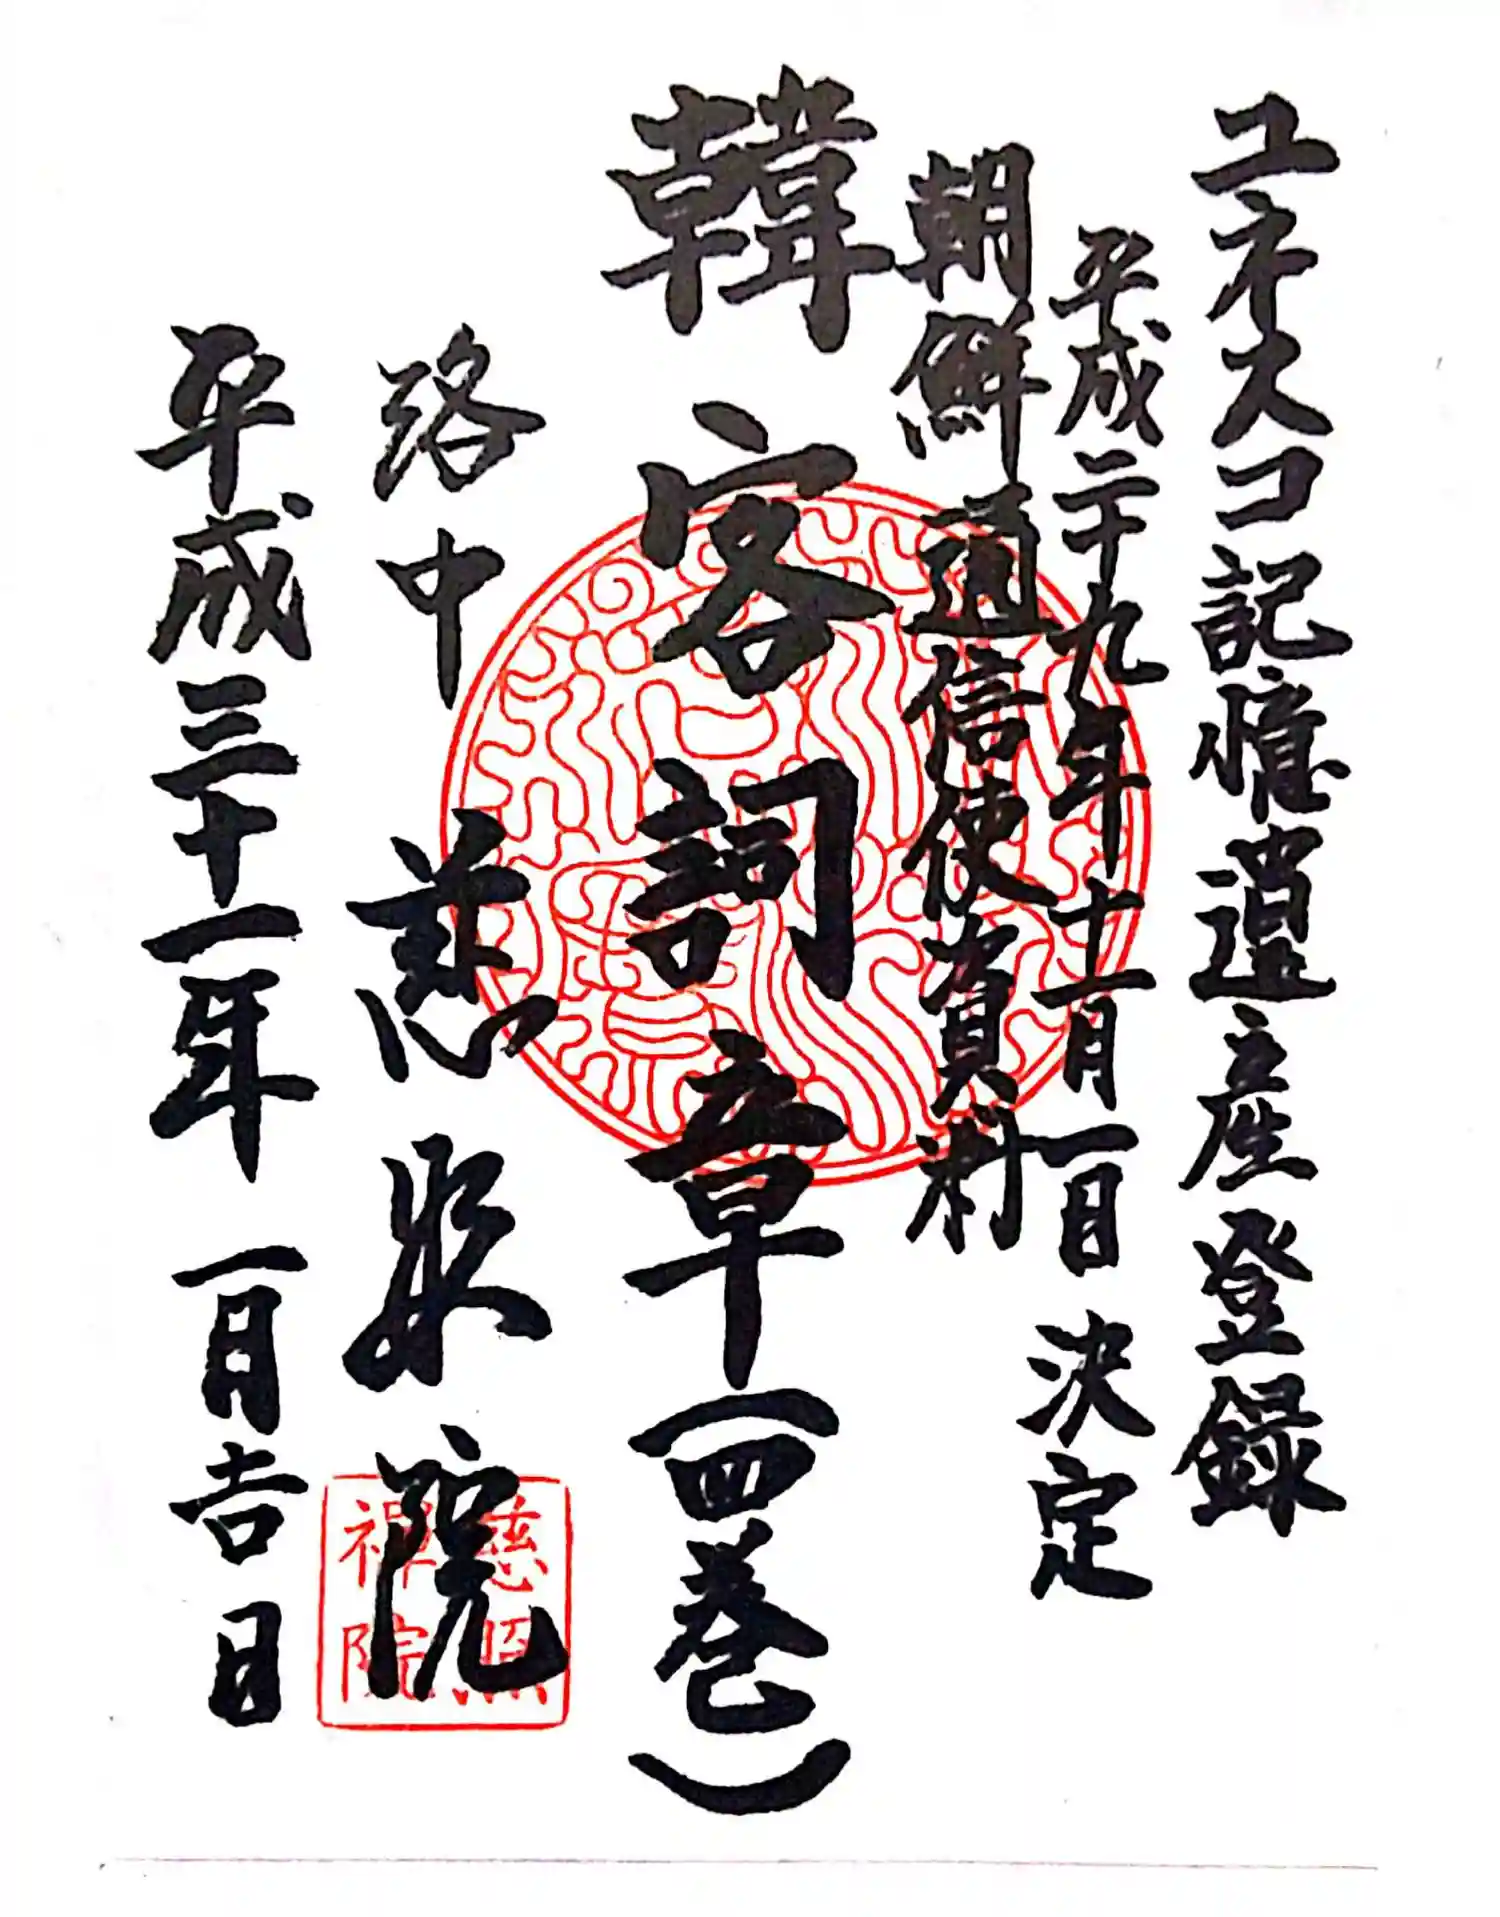 ユネスコ記憶遺産登録
平成二十九年十月三十一日決定
朝鮮通信使資料
韓客詞章(四巻)
洛中 慈照院
平成三十一年一月吉日
慈照
禅院